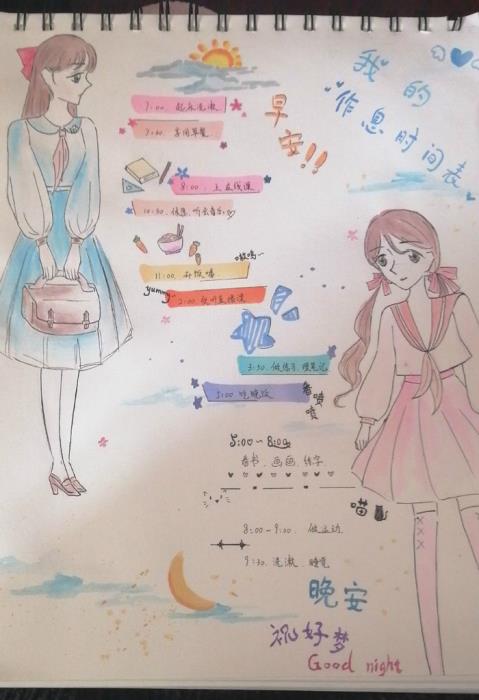 我的
作息时间表
早安!!
7:00. 起床洗漱
7:30. 享用早餐
8:00. 上在线课
10:30. 休息. 听会音乐
嗷呜~
11:00. 干饭喽
yummy~
2:00.
3:30. 做练习. 理笔记
5:00. 吃晚饭
香喷喷
5:00~8:00
看书. 画画. 练字
喵
8:00-9:00. 做运动
9:30. 洗漱. 睡觉
晚安
祝好梦
Good night